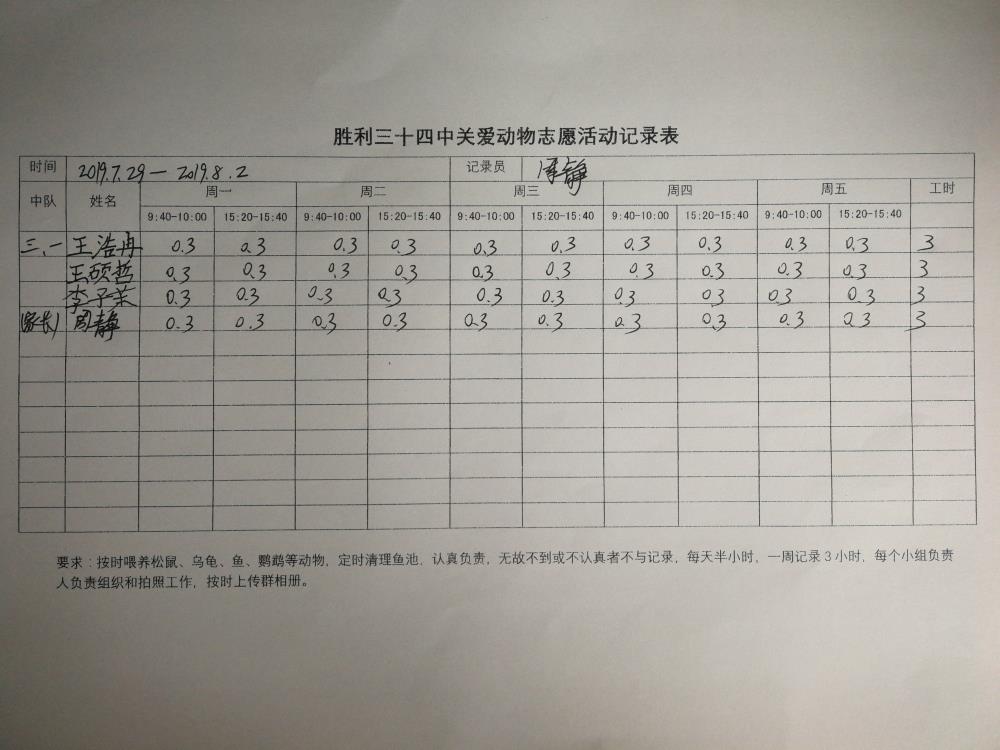 胜利三十四中关爱动物志愿活动记录表
时间 2019.7.29—2019.8.2 记录员 周静
中队 姓名 周一 周二 周三 周四 周五 工时
9:40-10:00 15:20-15:40 9:40-10:00 15:20-15:40 9:40-10:00 15:20-15:40 9:40-10:00 15:20-15:40 9:40-10:00 15:20-15:40
三.一 王浩冉 0.3 0.3 0.3 0.3 0.3 0.3 0.3 0.3 0.3 0.3 3
王硕哲 0.3 0.3 0.3 0.3 0.3 0.3 0.3 0.3 0.3 0.3 3
李子茉 0.3 0.3 0.3 0.3 0.3 0.3 0.3 0.3 0.3 0.3 3
(家长) 周静 0.3 0.3 0.3 0.3 0.3 0.3 0.3 0.3 0.3 0.3 3
要求:按时喂养松鼠、乌龟、鱼、鹦鹉等动物,定时清理鱼池,认真负责,无故不到或不认真者不与记录,每天半小时,一周记录3小时,每个小组负责
人负责组织和拍照工作,按时上传群相册。